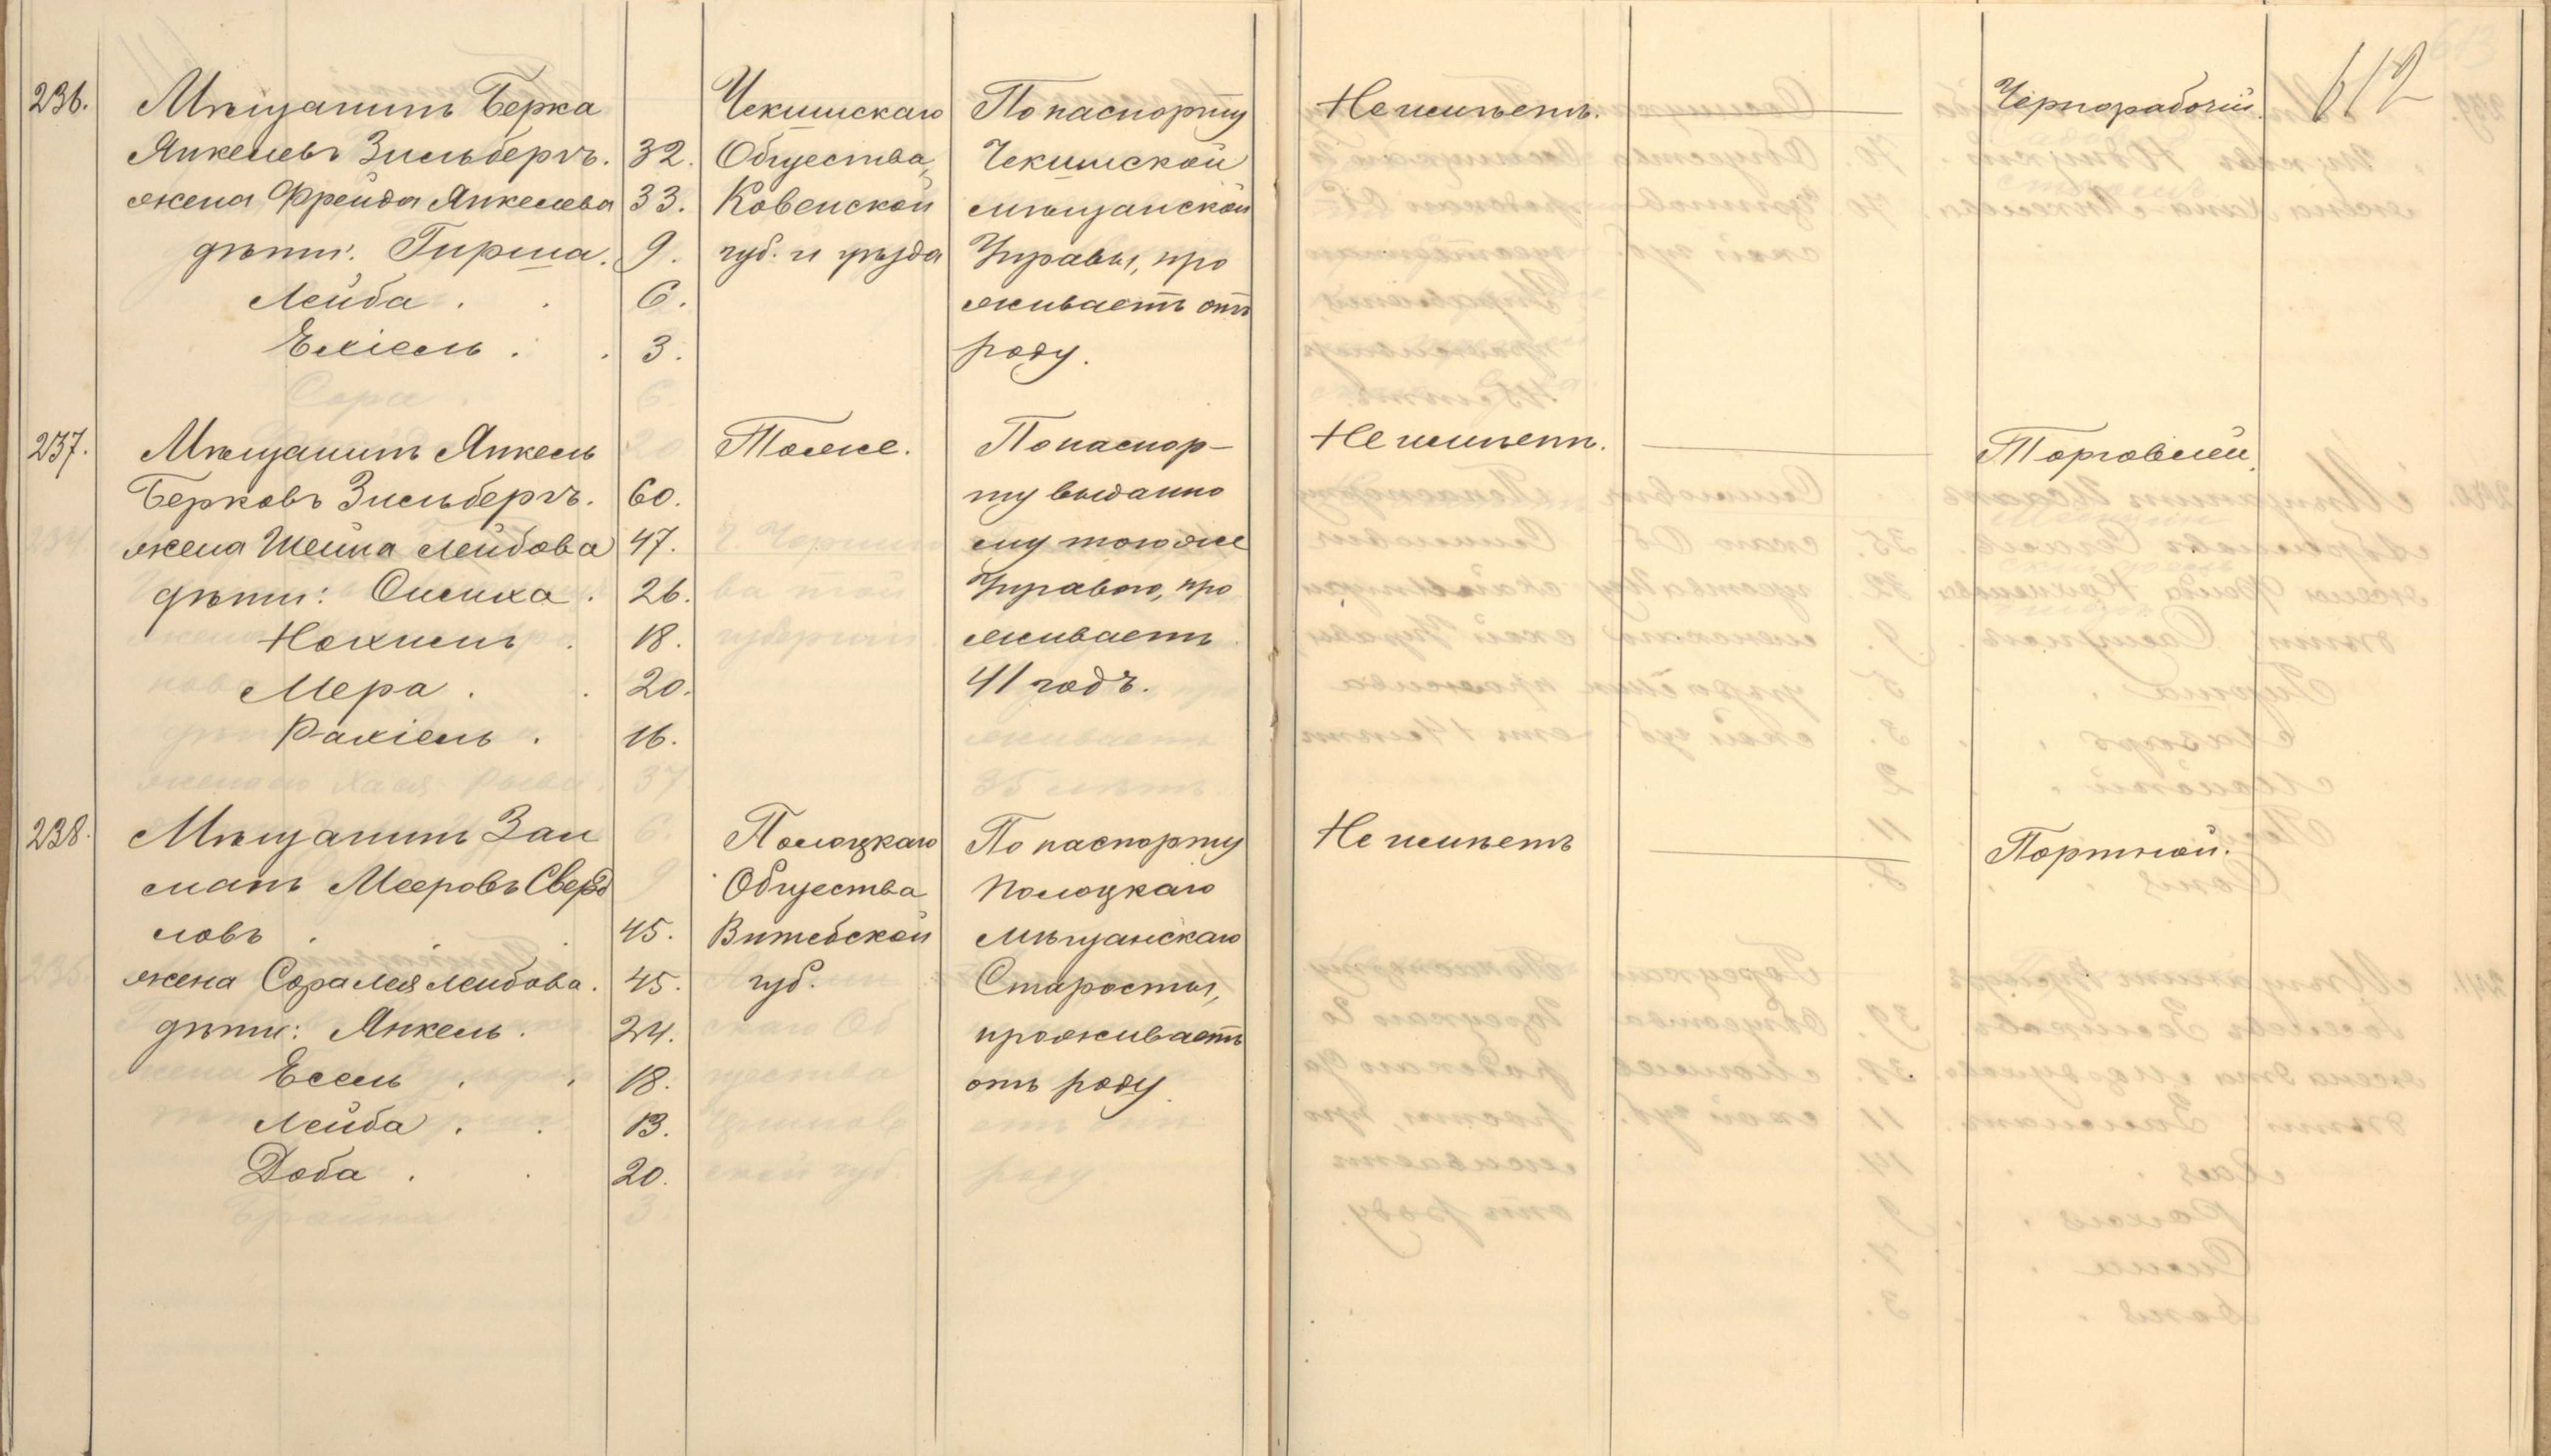 612
236.
Мѣщанинъ Берка
Янкелевъ Зильбергъ. 32.
жена Фрейда Янкелева 33.
дѣти: Гирша. 9.
Лейба . . 6.
Ехіель . . 3.
Чекишскаго
Общества,
Ковенской
губ. и уѣзда
По паспорту
Чекишской
мѣщанской
Управы, про
живаетъ отъ
роду.
Не имѣетъ.
Чернорабочій.
237.
Мѣщанинъ Янкель
Берковъ Зильбергъ. 60.
жена Шейна Лейбова 47.
дѣти: 26.
Нохимъ . 18.
Мера . . 20.
Рахіель . 16.
Тоже.
По паспор-
ту выданно
му тою же
Управою, про
живаетъ
41 годъ.
Не имѣетъ.
Торговлей.
238.
Мѣщанинъ Зал
манъ Мееровъ Сверд
ловъ . . 45.
жена Сора Лея Лейбова. 45.
дѣти: Янкель. 24.
Есель . . 18.
Лейба . . 13.
Доба . . 20.
Полоцкаго
Общества
Витебской
губ.
По паспорту
Полоцкаго
Мѣщанскаго
Старосты,
проживаетъ
отъ роду.
Не имѣетъ
Портной.